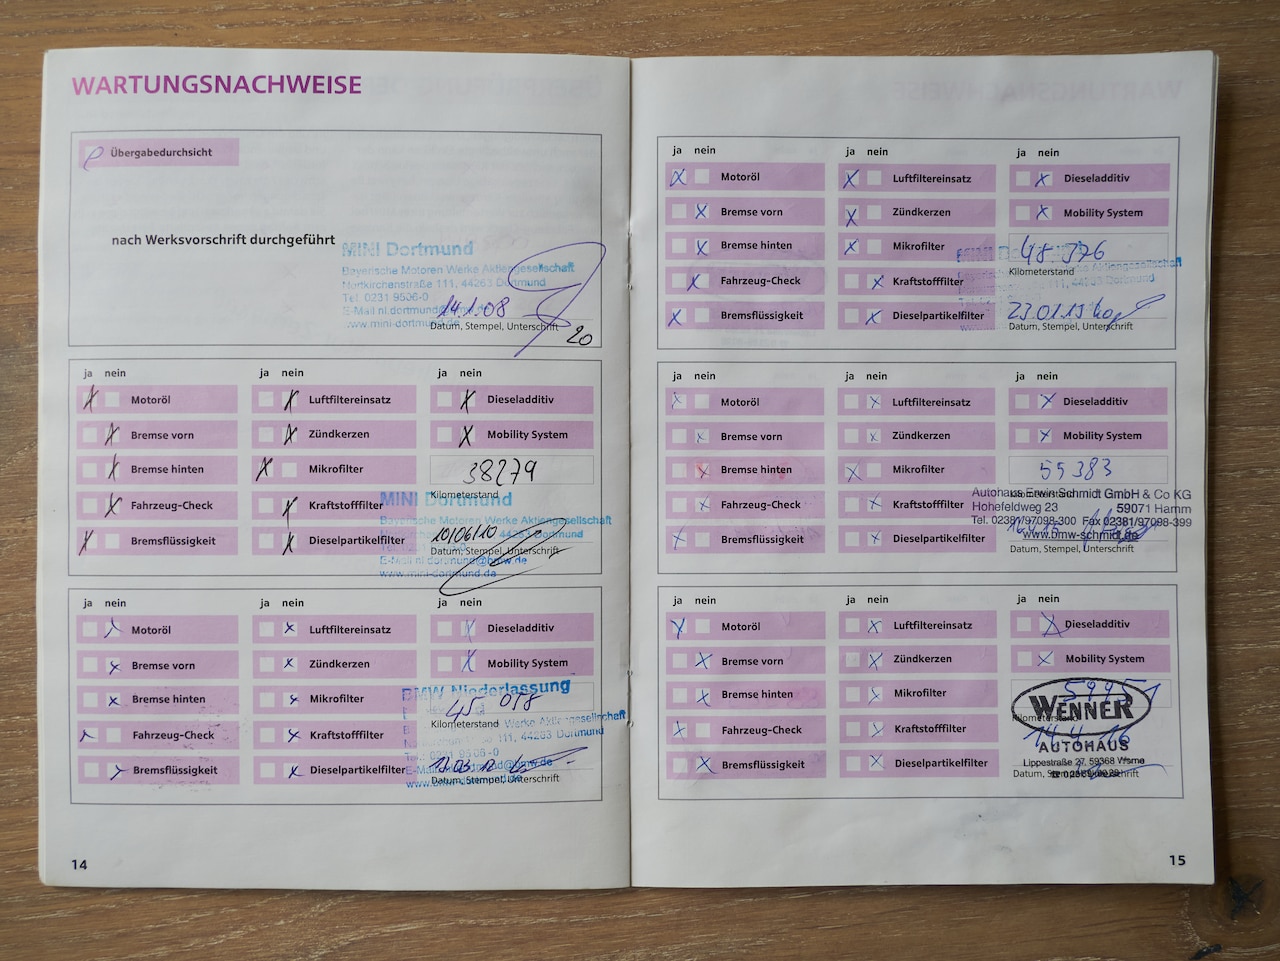 WARTUNGSNACHWEISE
Übergabedurchsicht
nach Werksvorschrift durchgeführt
MINI Dortmund
Bayerische Motoren Werke Aktiengesellschaft
Nortkirchenstraße 111, 44263 Dortmund
Tel. 0231 9506-0
E-Mail nl.dortmund@bmw.de
www.mini-dortmund.de
14.1.08
Datum, Stempel, Unterschrift
20
ja nein ja nein ja nein
Motoröl Luftfiltereinsatz Dieseladditiv
Bremse vorn Zündkerzen Mobility System
Bremse hinten Mikrofilter 38279
Kilometerstand
Fahrzeug-Check Kraftstofffilter
MINI Dortmund
Bayerische Motoren Werke Aktiengesellschaft
44263 Dortmund
10/06/10
Bremsflüssigkeit Dieselpartikelfilter
Datum, Stempel, Unterschrift
E-Mail nl.dortmund@bmw.de
www.mini-dortmund.de
ja nein ja nein ja nein
Motoröl Luftfiltereinsatz Dieseladditiv
Bremse vorn Zündkerzen Mobility System
BMW Niederlassung
Bremse hinten Mikrofilter 45 078
Kilometerstand
Werke Aktiengesellschaft
111, 44263 Dortmund
Fahrzeug-Check Kraftstofffilter
Tel.: 0231 9506-0
Bremsflüssigkeit Dieselpartikelfilter
Datum, Stempel, Unterschrift
14
ja nein ja nein ja nein
Motoröl Luftfiltereinsatz Dieseladditiv
Bremse vorn Zündkerzen Mobility System
Bremse hinten Mikrofilter 48 376
Kilometerstand
Fahrzeug-Check Kraftstofffilter
23.01.15
Bremsflüssigkeit Dieselpartikelfilter
Datum, Stempel, Unterschrift
ja nein ja nein ja nein
Motoröl Luftfiltereinsatz Dieseladditiv
Bremse vorn Zündkerzen Mobility System
Bremse hinten Mikrofilter 55383
Kilometerstand
Autohaus Erwin Schmidt GmbH & Co KG
Hohefeldweg 23 59071 Hamm
Tel. 02381/97098-300 Fax 02381/97098-399
www.bmw-schmidt.de
Fahrzeug-Check Kraftstofffilter
Bremsflüssigkeit Dieselpartikelfilter
Datum, Stempel, Unterschrift
ja nein ja nein ja nein
Motoröl Luftfiltereinsatz Dieseladditiv
Bremse vorn Zündkerzen Mobility System
Bremse hinten Mikrofilter
WENNER
Kilometerstand
14.4.16
AUTOHAUS
Fahrzeug-Check Kraftstofffilter
Bremsflüssigkeit Dieselpartikelfilter
Lippestraße 27, 59368 Werne
15